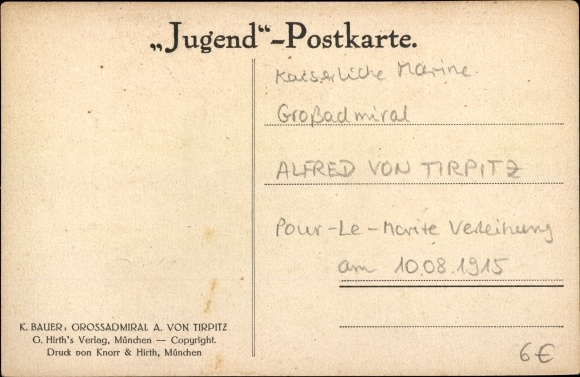 „Jugend“-Postkarte.
Kaiserliche Marine
Großadmiral
ALFRED VON TIRPITZ
Pour-Le-Morite Verleihung
am 10.08.1915
K. BAUER: GROSSADMIRAL A. VON TIRPITZ
G. Hirth's Verlag, München — Copyright.
Druck von Knorr & Hirth, München
6€